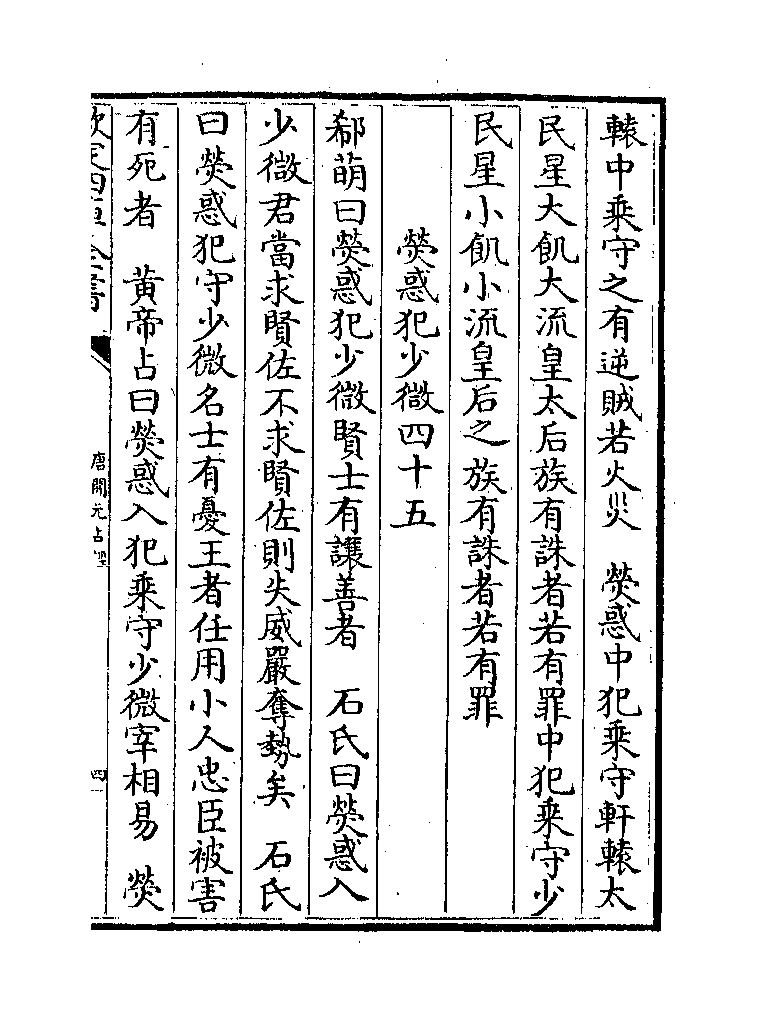 轅中乘守之有逆賊若火災　熒惑中犯乘守軒轅太
民星大飢大流皇太后族有誅者若有罪中犯乘守少
民星小飢小流皇后之族有誅者若有罪
熒惑犯少微四十五
郗萌曰熒惑犯少微賢士有讓善者　石氏曰熒惑入
少微君當求賢佐不求賢佐則失威嚴奪勢矣　石氏
曰熒惑犯守少微名士有憂王者任用小人忠臣被害
有死者　黄帝占曰熒惑入犯乘守少微宰相易　熒
欽定四庫全書
唐開元占經
四